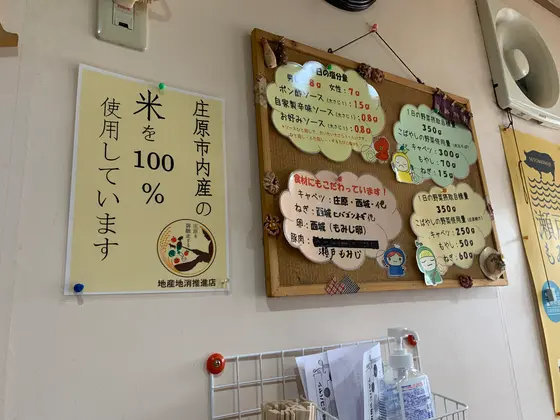 庄原市内産の
米を100%
使用しています
地産地消推進店
1日の塩分量
男性：8g 女性：7g
ポン酢ソース(大さじ1)：1.5g
自家製辛味ソース(大さじ1)：0.8g
お好みソース(大さじ1)：0.8g
1日の野菜摂取目標量
350g
こばやしの野菜使用量
キャベツ：300g
もやし：70g
ねぎ：15g
食材にもこだわっています！
キャベツ：庄原・西城・
ねぎ：西城
卵：西城(もみじ卵)
豚肉：
瀬戸もみじ
1日の野菜摂取目標量
350g
こばやしの野菜使用量
キャベツ：250g
もやし：50g
ねぎ：60g